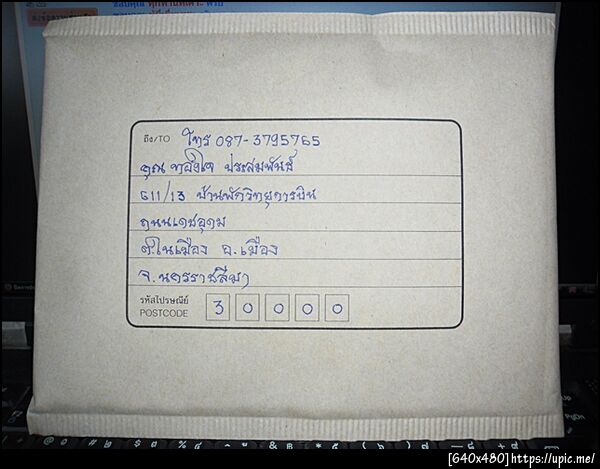 ขอบคุณ ทุกท่านที่เคารพ ครับ
ถึง/TO โทร 087-3795765
คุณ ทองใบ ประสมพันธ์
611/13 บ้านพักวิทยุการบิน
ถนนเดชอุดม
ต.ในเมือง อ.เมือง
จ.นครราชสีมา
รหัสไปรษณีย์
POSTCODE 30000
[640x480]https://upic.me/